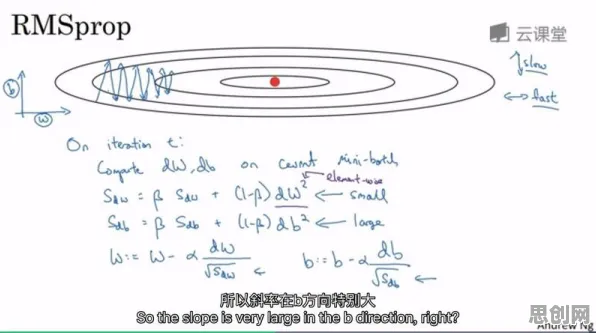 RMSprop
云课堂
↕ slow
↔ fast
b
w
On iteration t:
Compute dW, db on current mini-batch
element-wise
S_dw = β S_dw + (1-β) dW² ← small
S_db = β S_db + (1-β) db² ← large
W := W - α dW/√S_dw ← b := b - α db/√S_db ←
所以斜率在b方向特别大
So the slope is very large in the b direction, right?
Andrew Ng
思创网